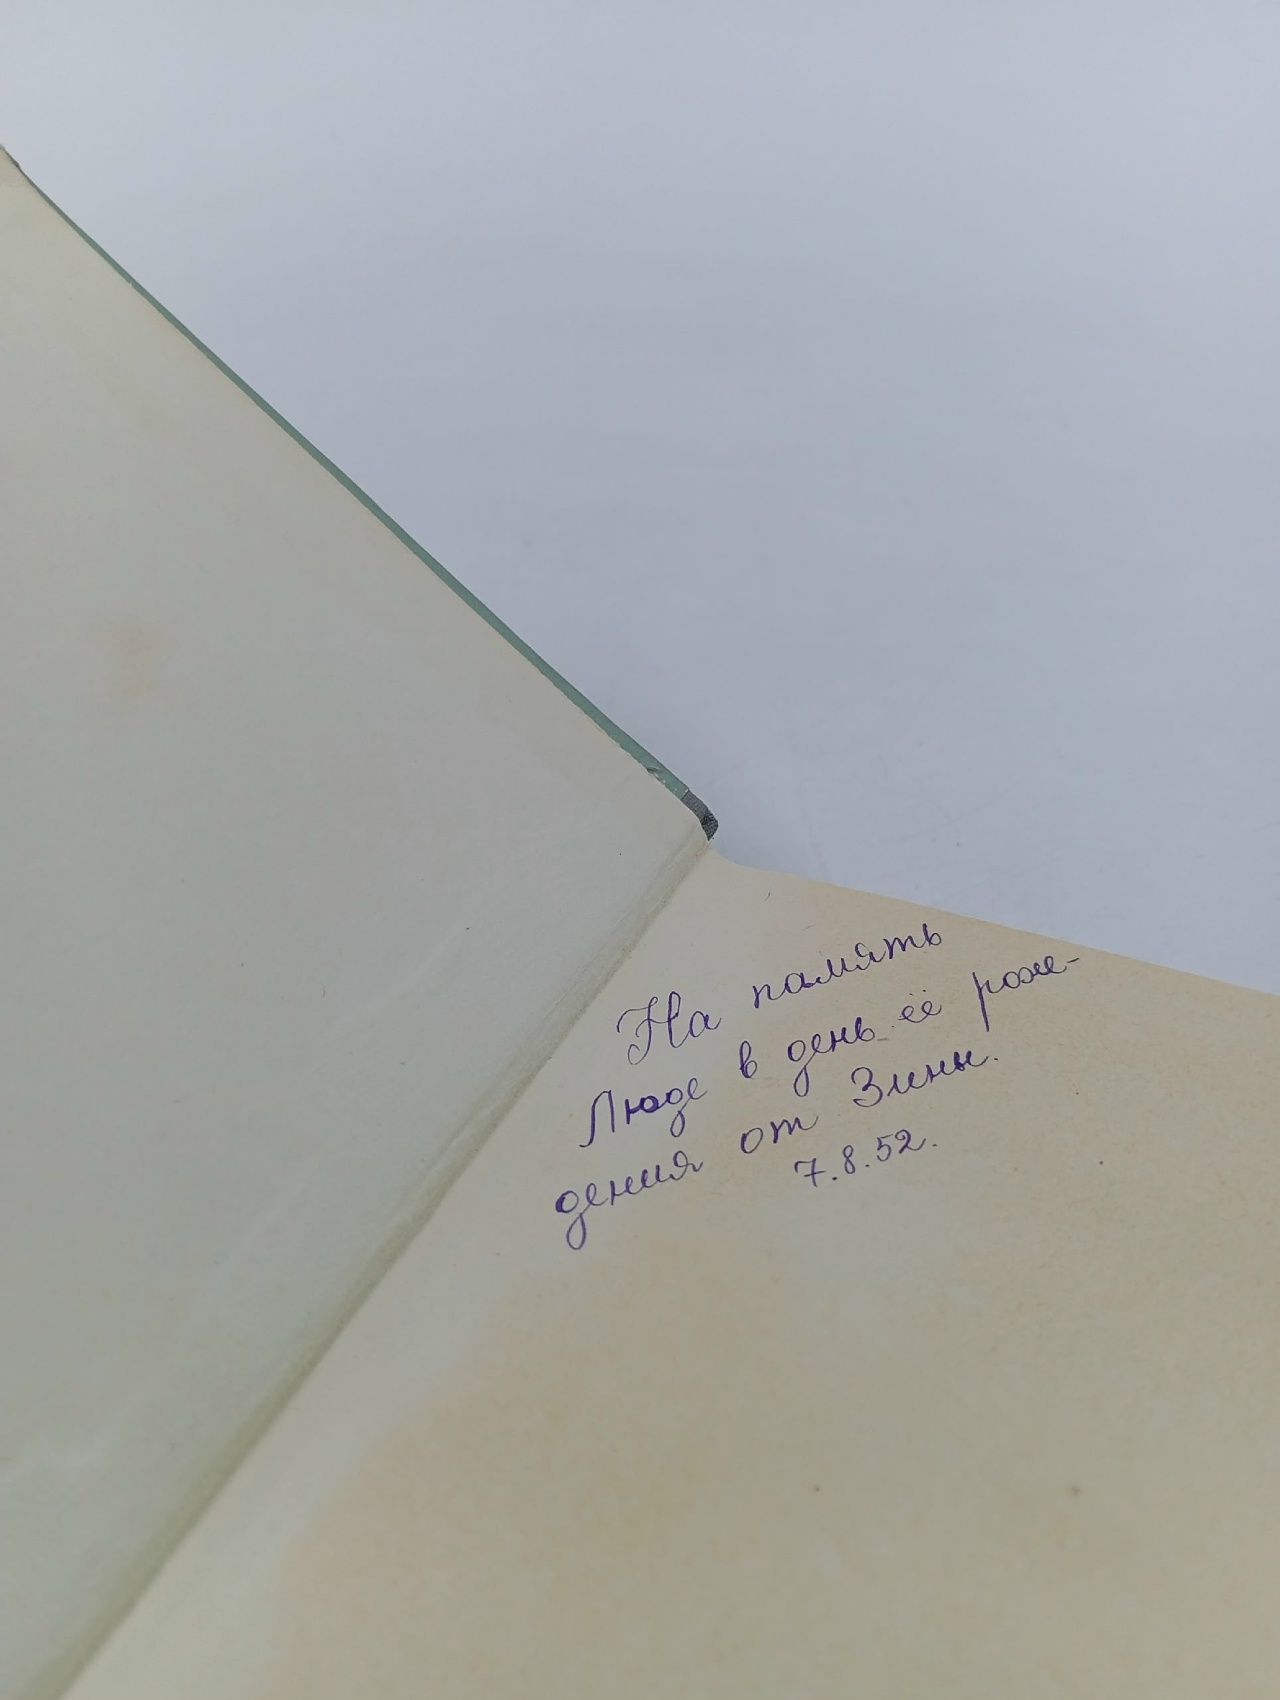 На память
Люде в день её рож-
дения от Зины.
7.8.52.